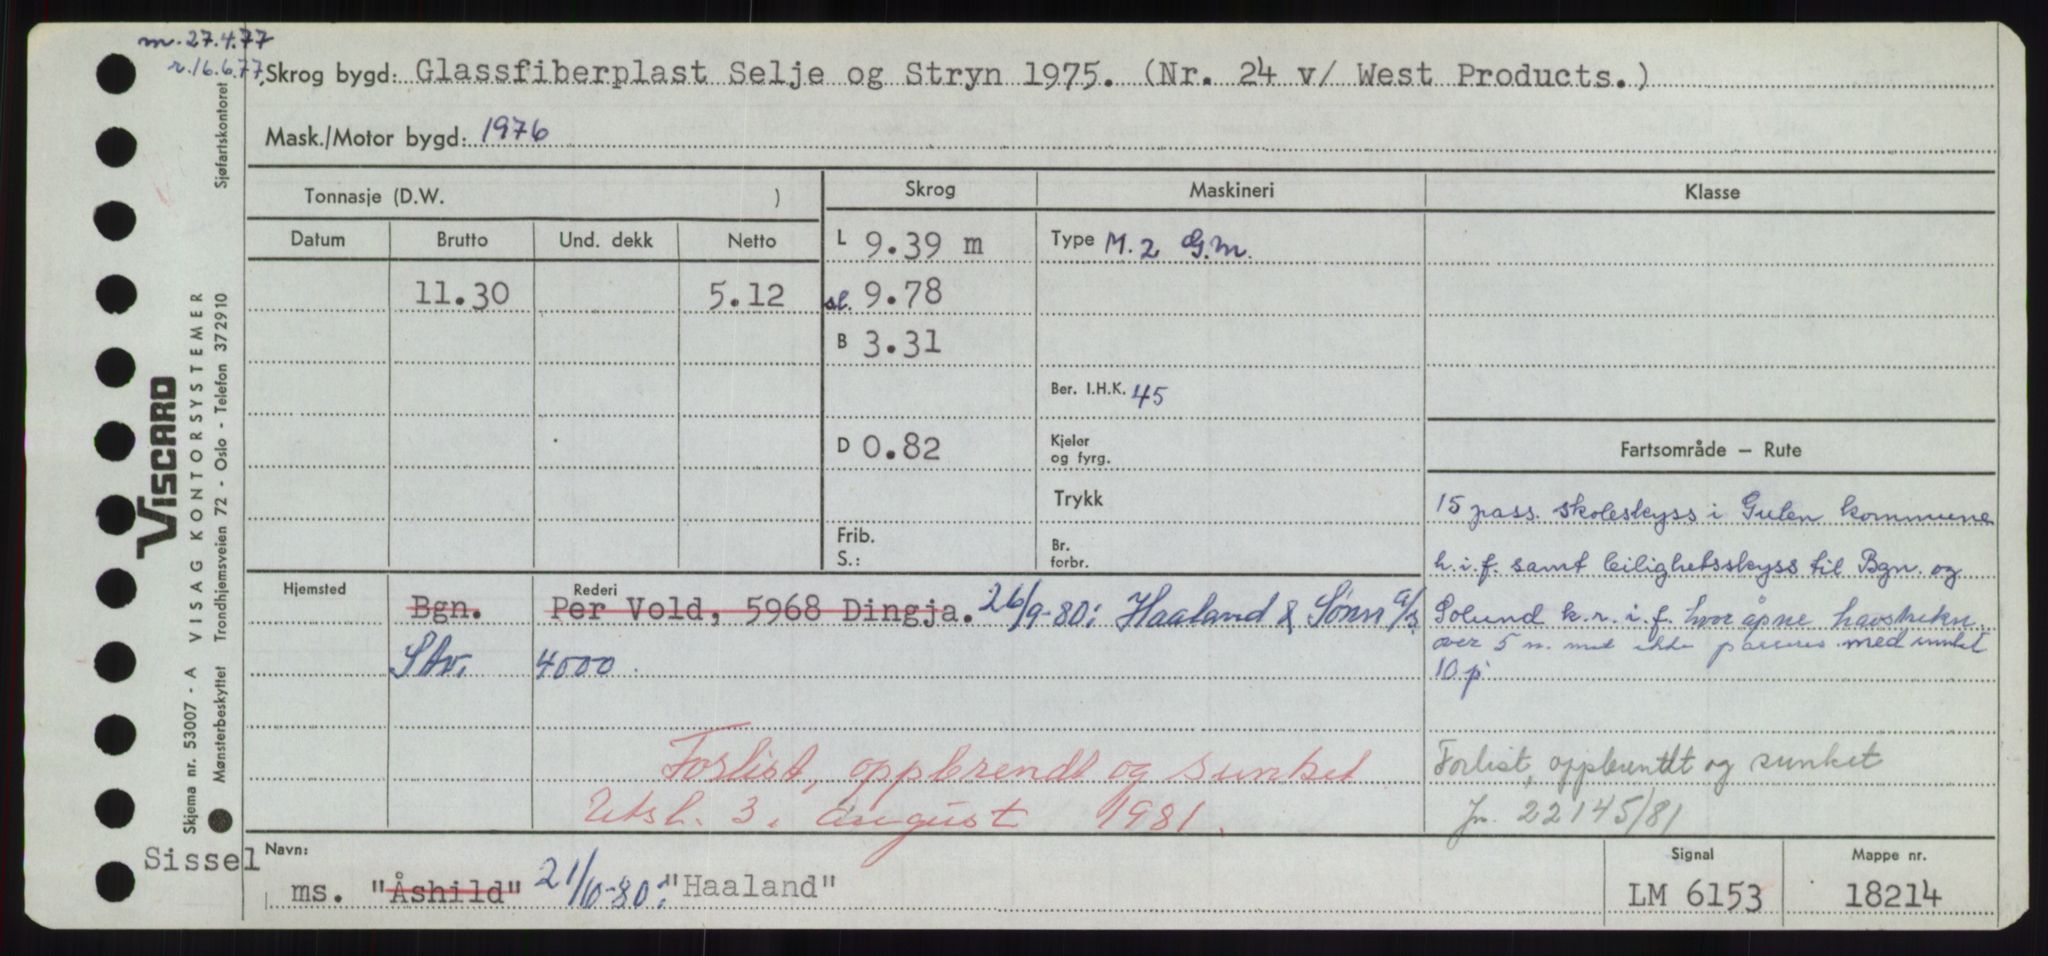 m. 27.4.77
r. 16.6.77,
Skrog bygd: Glassfiberplast Selje og Stryn 1975. (Nr. 24 v/ West Products.)
Mask./Motor bygd: 1976
Tonnasje (D.W. )
Skrog
Maskineri
Klasse
Datum Brutto Und. dekk Netto
L 9.39 m
Type M. 2 G.M.
11.30 5.12
sl. 9.78
B 3.31
Ber. I.H.K. 45
D 0.82
Kjeler
og fyrg.
Fartsområde — Rute
Trykk
Frib.
S.:
Br.
forbr.
15 pass. skoleskyss i Gulen kommune
h.i.f. samt leilighetsskyss til Bgn. og
Solund k.r.i.f. hvor åpne havstrekn.
over 5 n. m ikke passeres med innket
10 p
Hjemsted Rederi
Bgn. Per Vold, 5968 Dingja. 26/9-80: Haaland & Sønn a/s
Stv. 4000.
Forlist, oppbrendt og sunket
Utsl. 3. august 1981.
Forlist, oppbrentdt og sunket
Jn. 22145/81
Sissel
Navn:
ms. "Åshild" 21/10-80: "Haaland"
Signal
LM 6153
Mappe nr.
18214
Sjøfartskontoret
VISCARD
VISAG KONTORSYSTEMER
Skjema nr. 53007 - A
Mønsterbeskyttet Trondhjemsveien 72 - Oslo - Telefon 372910